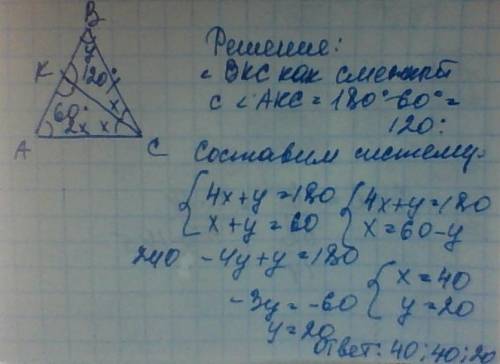 B
y
K
120°
60°
x
2x
x
A
C
Решение:
∠BKC как смежный
с ∠AKC = 180°-60° =
120°.
Составим систему:
{ 4x+y=180
{ x+y=60
{ 4x+y=180
{ x=60-y
240 -4y+y=180
-3y=-60
y=20
{ x=40
{ y=20
Ответ: 40; 40; 20